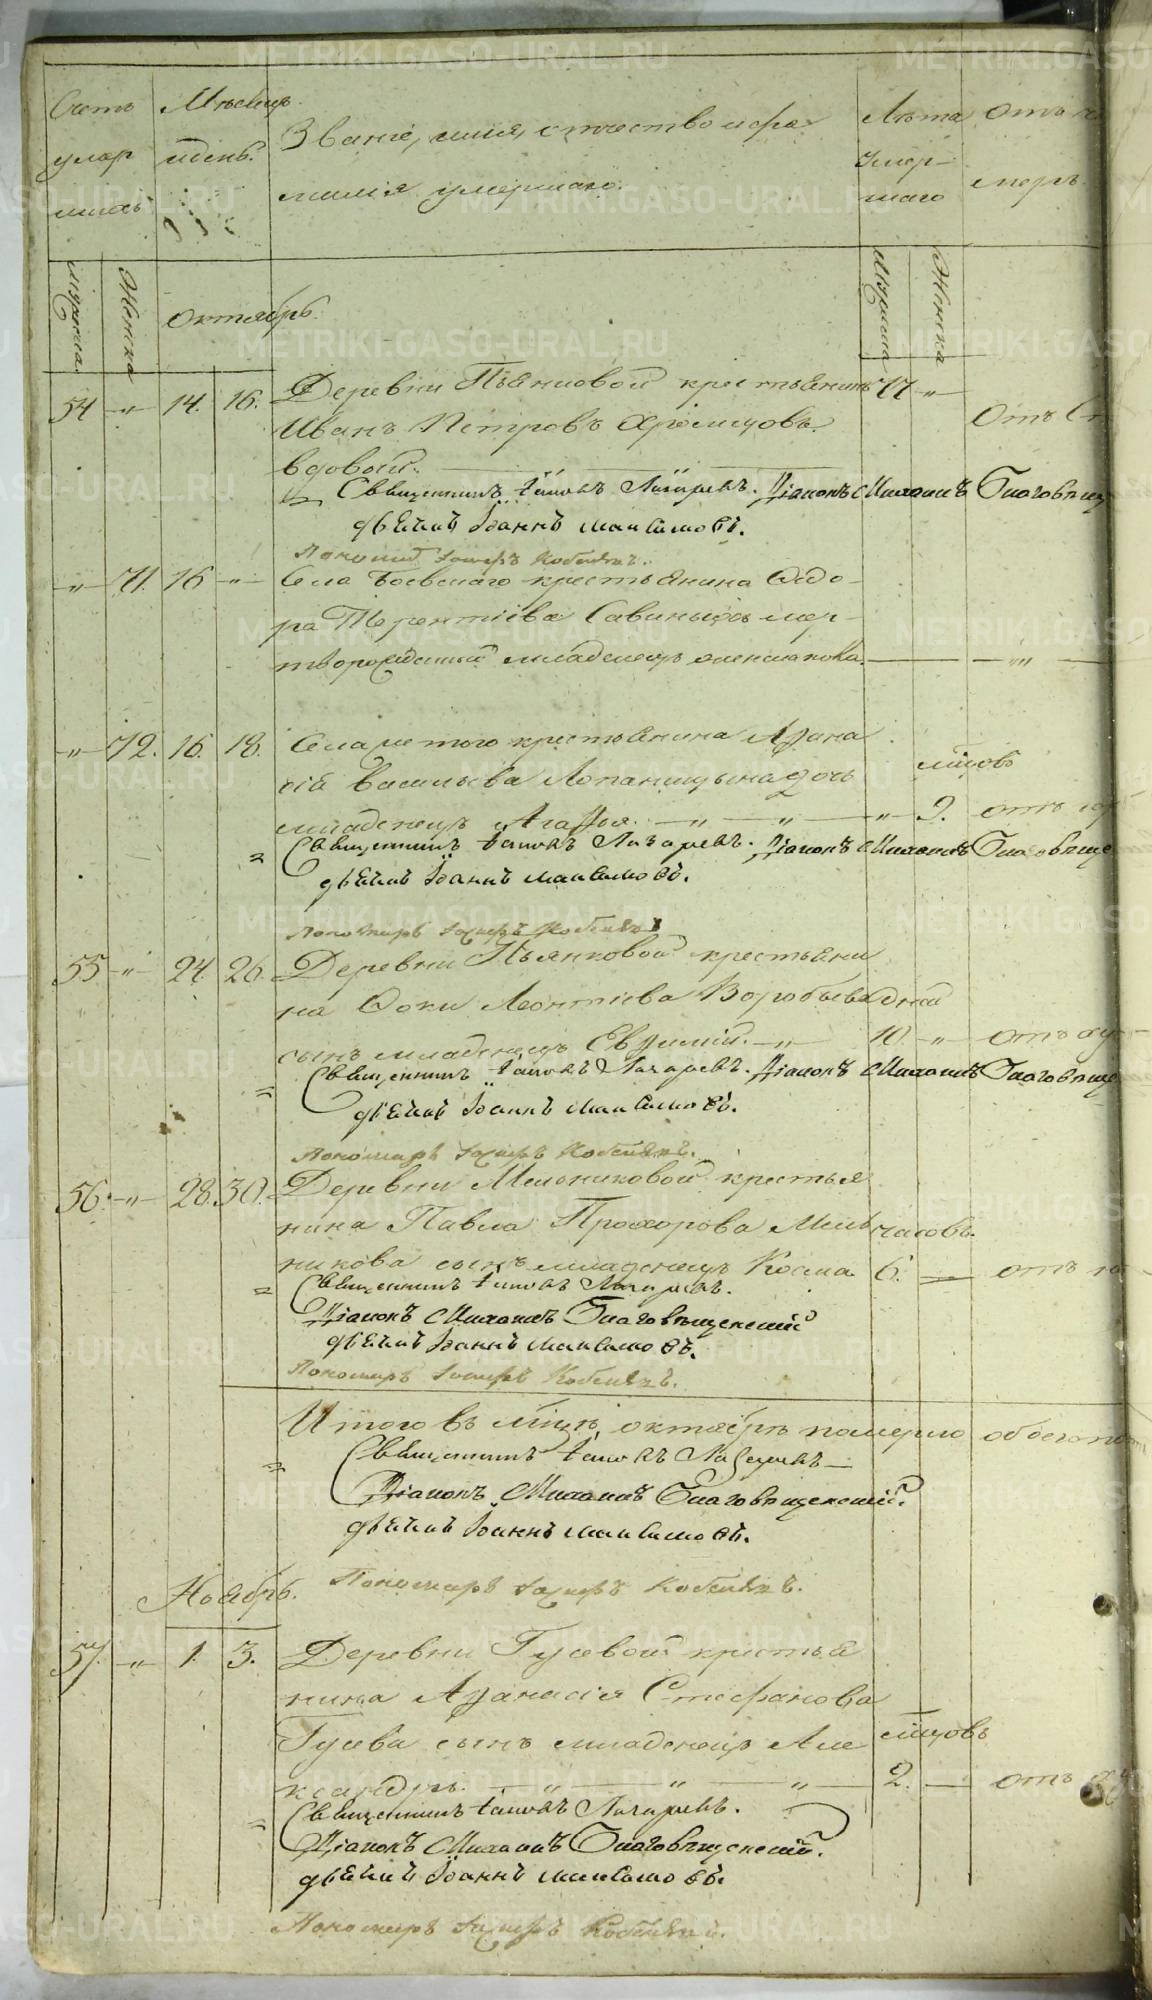 Счетъ умершихъ
Мѣсяцъ и день.
Званіе, имя, отчество и фа-
милія умершаго.
Лѣта умер-
шаго
Отъ ч
умеръ
Мужеска
Женска
Октябрь.
Мужеска
Женска
54 -"- 14. 16. Деревни Пьянковой крестьянинъ 77 -"-
Иванъ Петровъ Хромцовъ Отъ Ст
вдовой.
Священникъ Іаковъ Лазаревъ. Діаконъ Михаилъ Благовѣщ
дьячекъ Іоаннъ Максимовъ.
Пономарь Захаръ Кобелевъ.
-"- 71. 16 -"- Села Боевскаго крестьянина Ѳедо-
ра Терентіева Савиныхъ мер-
творожденный младенецъ женскаго пола. — " —
-"- 72. 16. 18. Села тогожъ крестьянина Афана
сія Васильева Лопаницына дочь мѣсяцовъ
младенецъ Агафья. -"- " -"- 9. отъ
Священникъ Іаковъ Лазаревъ. Діаконъ Михаилъ Благовѣще
дьячекъ Іоаннъ Максимовъ.
Пономарь Захаръ Кобелевъ
55 -"- 24. 26. Деревни Пьянковой крестьяни
на Фоки Леонтіева Воробьева дней
сынъ младенецъ Евфимій. -"- 10. -"- отъ
Священникъ Іаковъ Лазаревъ. Діаконъ Михаилъ Благовѣще
дьячекъ Іоаннъ Максимовъ.
Пономарь Захаръ Кобелевъ.
56. -"- 28. 30. Деревни Мельниковой крестья
нина Павла Прохорова Мель часовъ.
никова сынъ младенецъ Косма 6. — отъ
Священникъ Іаковъ Лазаревъ.
Діаконъ Михаилъ Благовѣщенскій
дьячекъ Іоаннъ Максимовъ.
Пономарь Захаръ Кобелевъ.
Итого въ мѣсяцѣ октябрѣ померло обоего по
Священникъ Іаковъ Лазаревъ
Діаконъ Михаилъ Благовѣщенскій.
дьячекъ Іоаннъ Максимовъ.
Пономарь Захаръ Кобелевъ.
Ноябрь.
57. -"- 1. 3. Деревни Гусевой крестья
нина Афанасія Стефанова
Гусева сынъ младенецъ Але мѣсяцовъ
ксандръ. — " — " — " — 2. — отъ
Священникъ Іаковъ Лазаревъ.
Діаконъ Михаилъ Благовѣщенскій.
дьячекъ Іоаннъ Максимовъ.
Пономарь Захаръ Кобелевъ.
METRIKI.GASO-URAL.RU